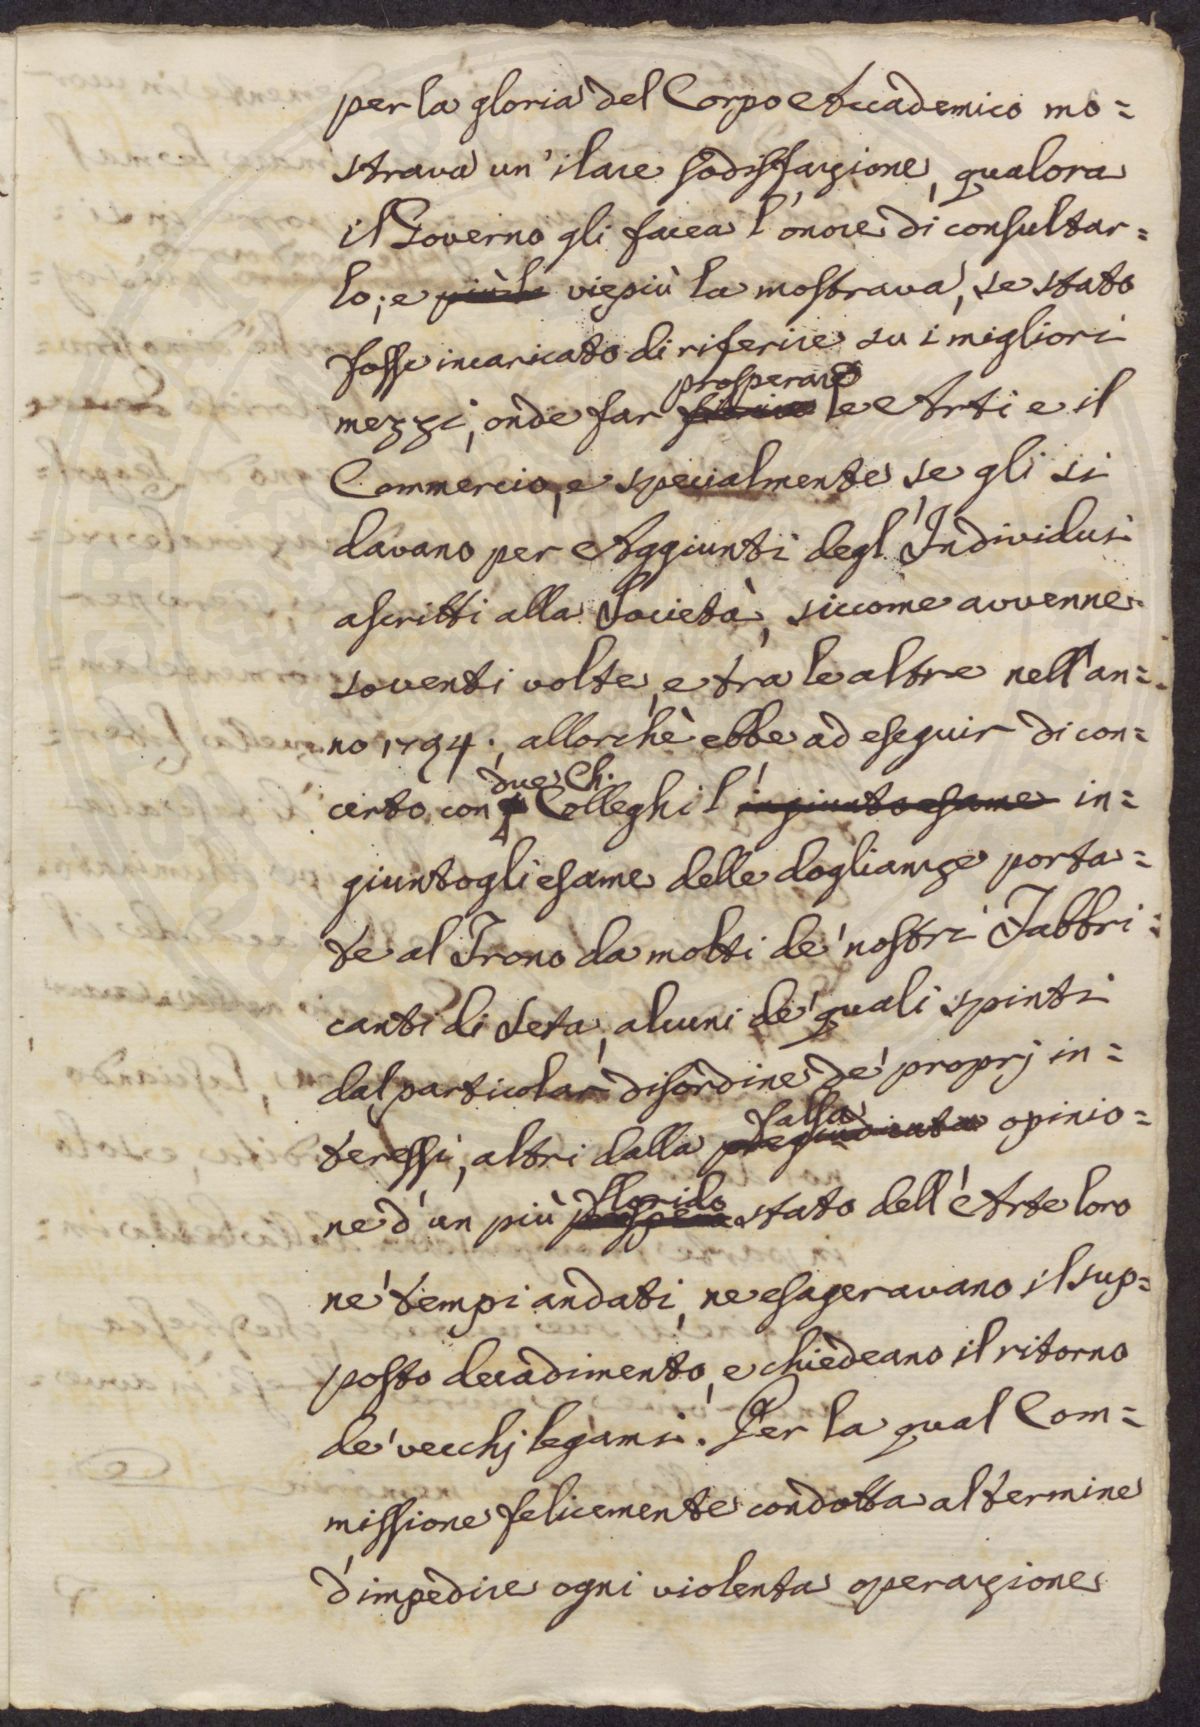 per la gloria del Corpo Accademico mo=
strava un'ilare sodisfazione, qualora
il Governo gli facea l'onore di consultar=
lo; e più la viepiù la mostrava, se stato
fosse incaricato di riferire su i migliori
prosperare
mezzi, onde far fiorire le Arti e il
Commercio, e specialmente se gli si
davano per Aggiunti degl'Individui
ascritti alla Società, siccome avvenne
soventi volte, e tra le altre nell'an=
no 1794., allorchè ebbe ad eseguir di con=
due Ch.
certo con Colleghi l'ingiunto esame in=
giuntogli esame delle doglianze porta=
te al Trono da molti de' nostri Fabbri=
canti di Seta, alcuni de' quali spinti
dal particolar disordine de' proprj in=
falsa
teressi, altri dalla pregiudicata opinio=
florido
ne d'un più prospero stato dell'Arte loro
ne' tempi andati, ne esageravano il sup=
posto decadimento, e chiedeano il ritorno
de' vecchj legami. Per la qual Com=
missione felicemente condotta al termine
d'impedire ogni violenta operazione